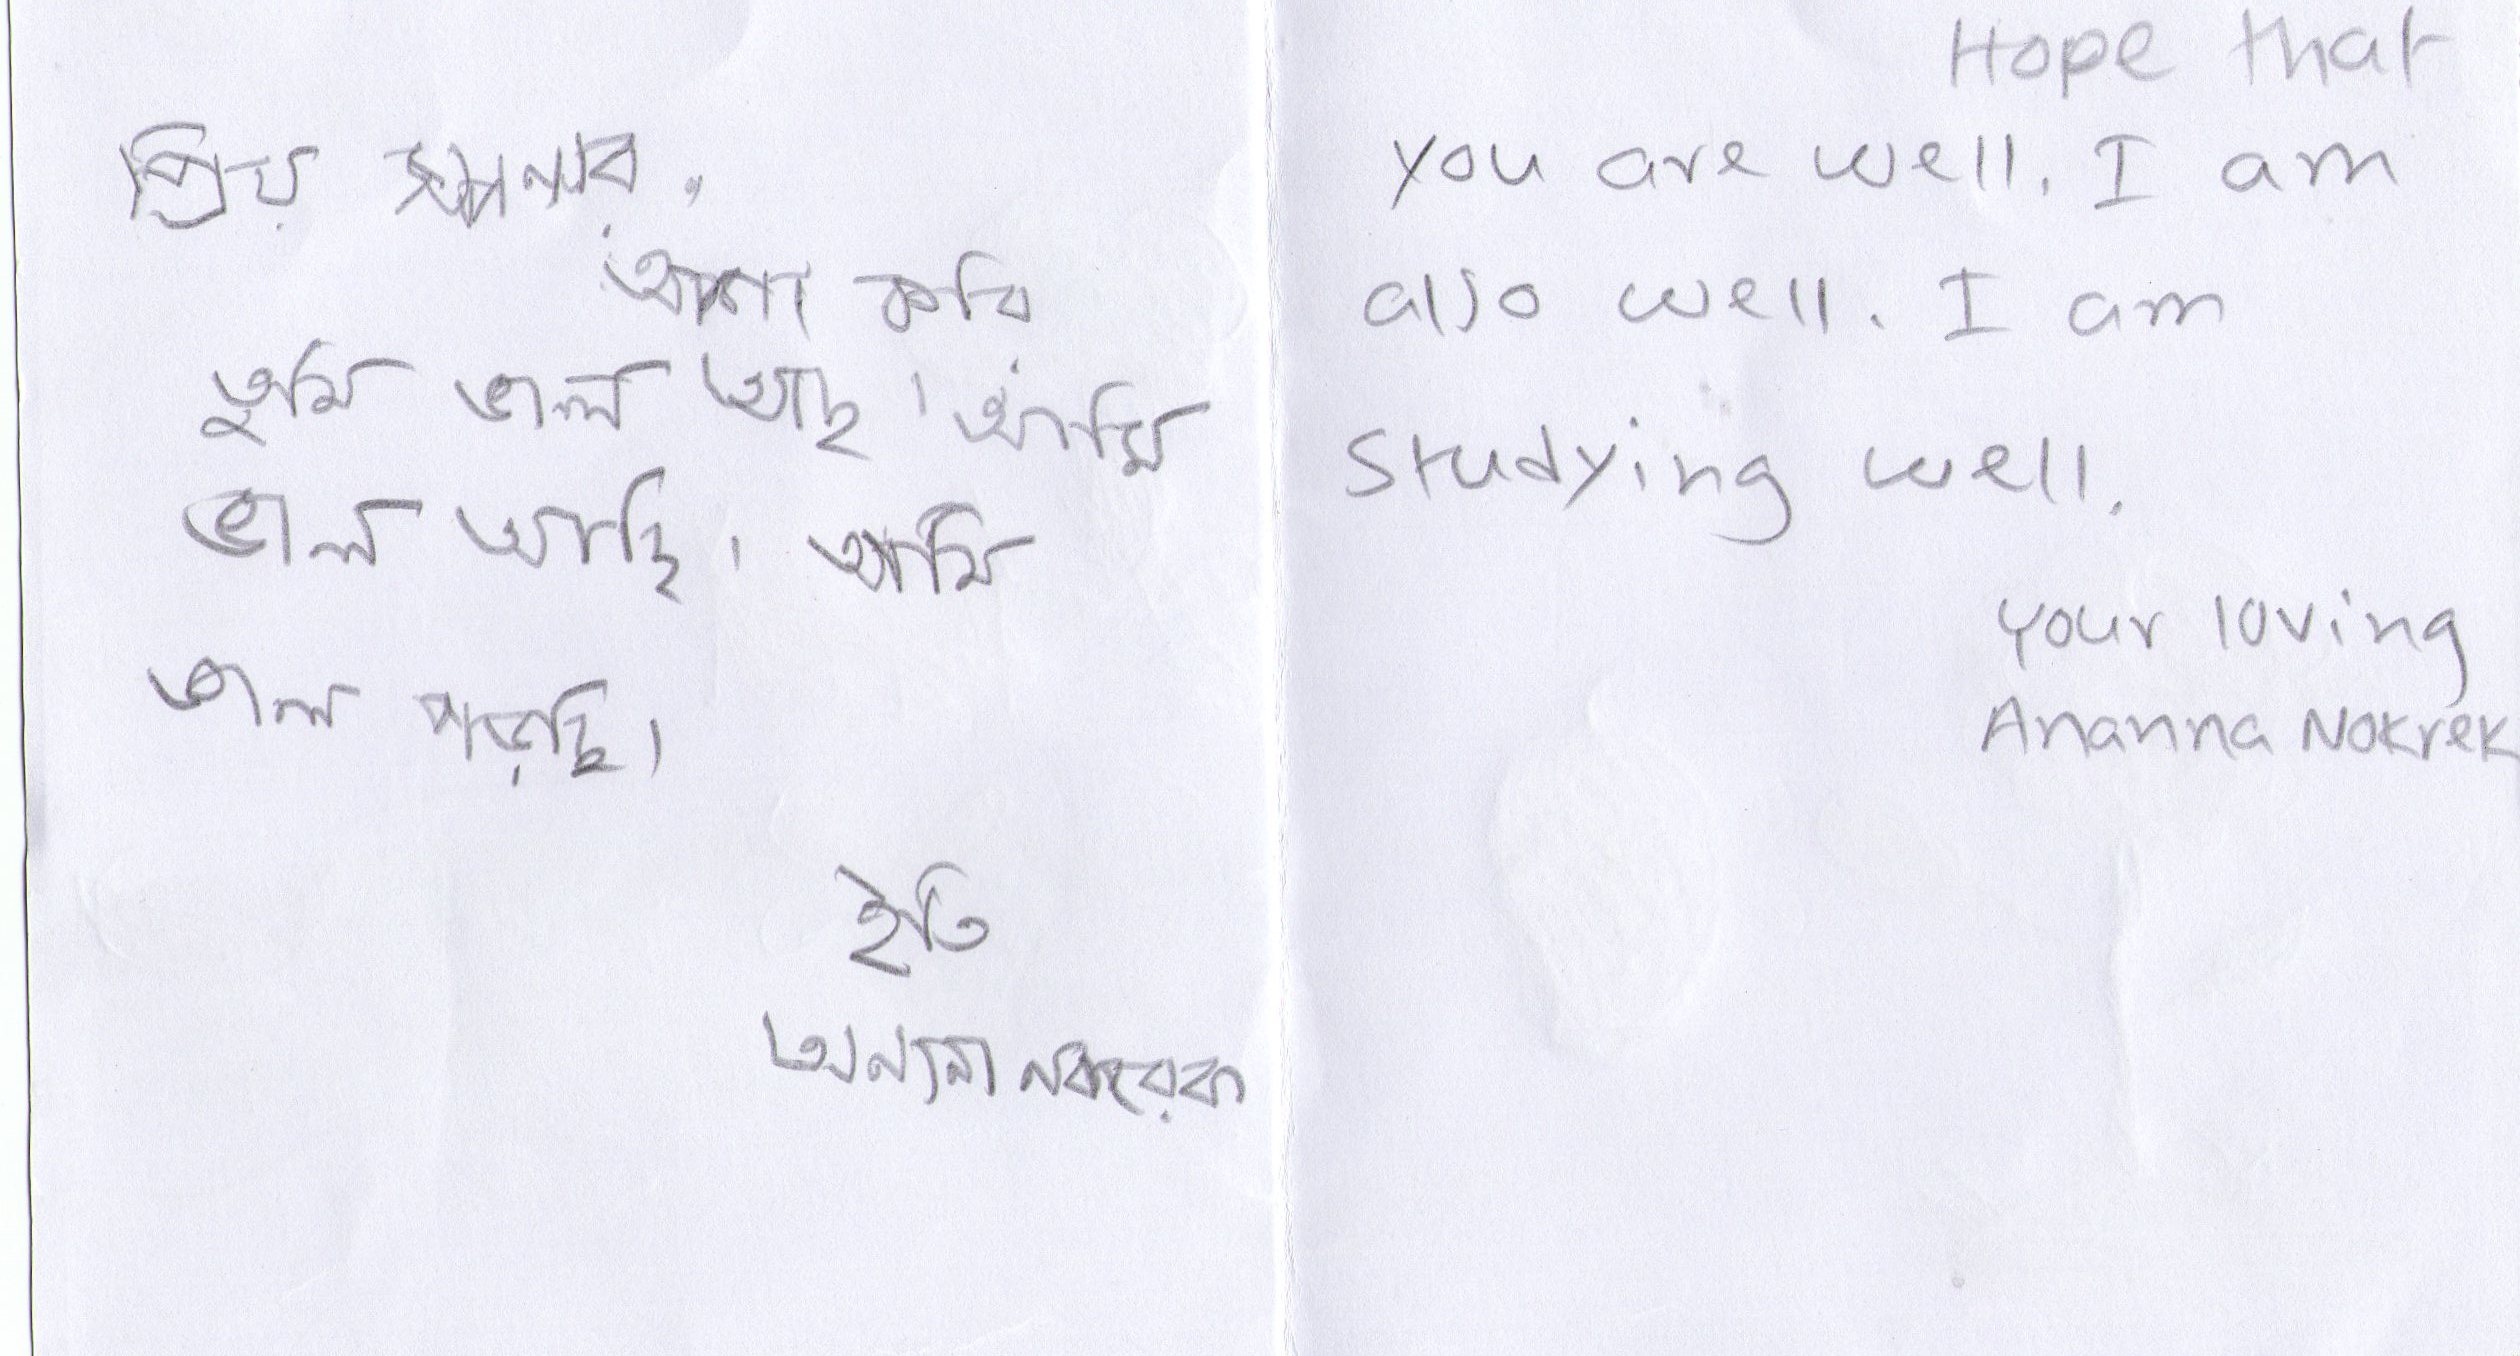 প্রিয়
আশা করি
তুমি ভাল আছ। আমি
ভাল আছি। আমি
ভাল পড়ছি।
ইতি
অনন্না নকরেক
Hope that
you are well. I am
also well. I am
studying well.
your loving
Ananna Nokrek